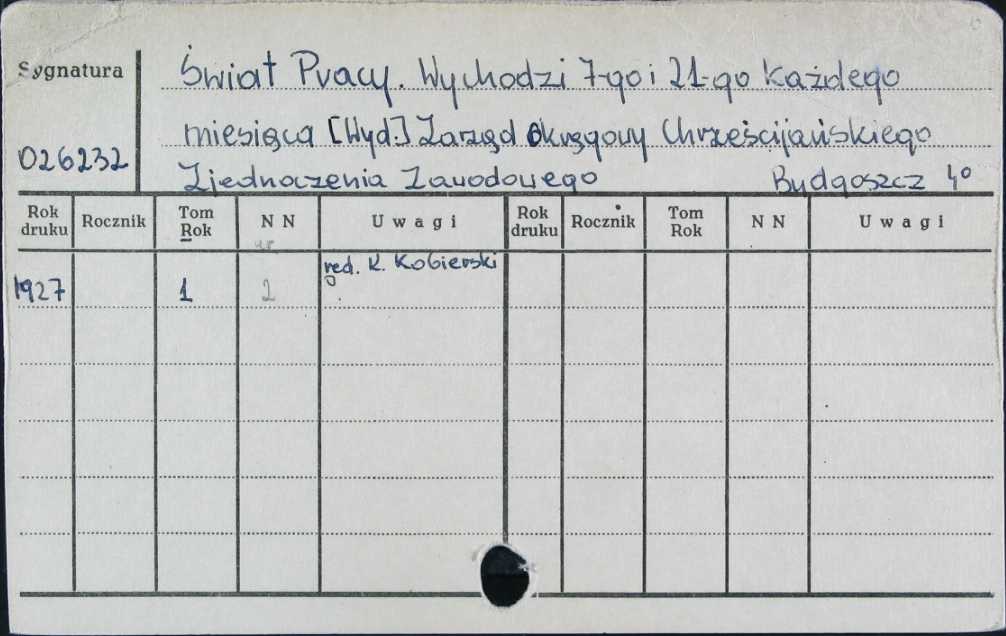 Sygnatura
Świat Pracy. Wychodzi 7-go i 21-go każdego
miesiąca [Wyd.] Zarząd Okręgowy Chrześcijańskiego
026232
Zjednoczenia Zawodowego Bydgoszcz 4°
Rok druku Rocznik Tom Rok N N Uwagi Rok druku Rocznik Tom Rok N N Uwagi
nr
red. K. Kobierski
1927 1 2